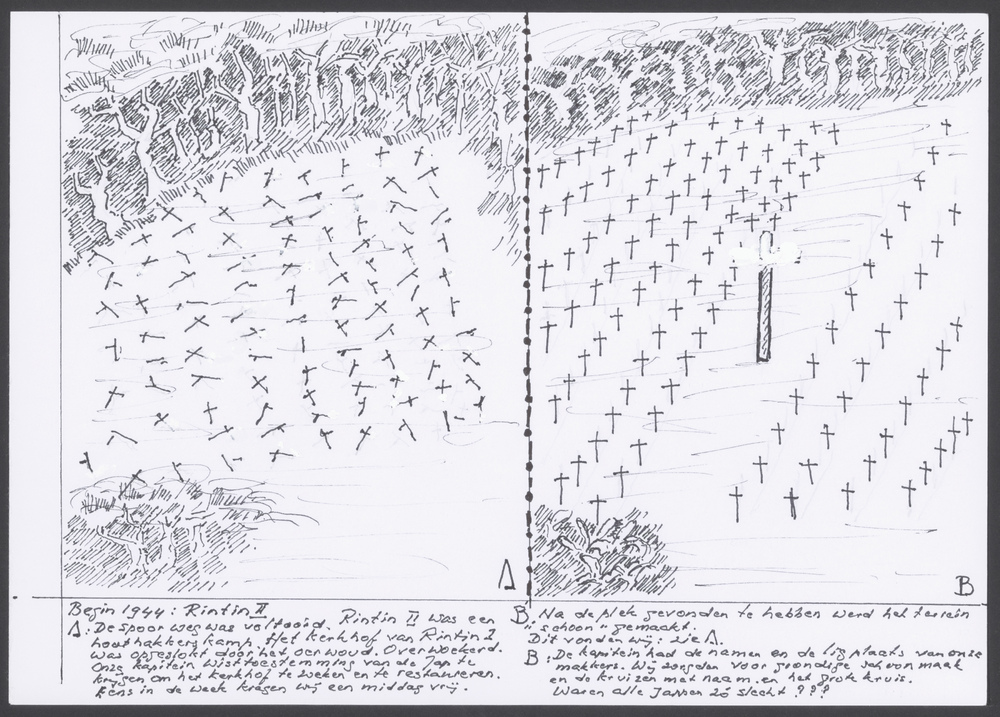 A
B
Begin 1944: Rintin II
A: De spoorweg was voltooid. Rintin II was een
houthakkerskamp. Het kerkhof van Rintin I
was opgeslokt door het oerwoud. Overwoekerd.
Onze kapitein wist toestemming van de Jap te
krijgen om het kerkhof te zoeken en te restaureren.
Eéns in de week kregen wij een middag vrij.
B. Na de plek gevonden te hebben werd het terrein
"schoon" gemaakt.
Dit vonden wij: zie A.
B: De kapitein had de namen en de ligplaats van onze
makkers. Wij zorgden voor grondige schoonmaak
en de kruizen met naam en het grote kruis.
Waren alle Jappen zó slecht ???